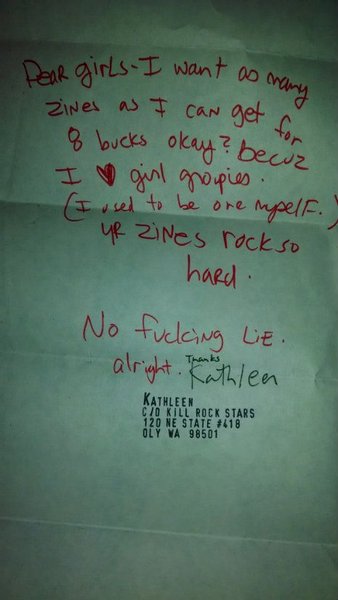 Dear girls - I want as many
zines as I can get for
8 bucks okay? Becuz
I ♥ girl groupies.
(I used to be one myself.)
yr zines rock so
hard.
No fucking Lie.
alright. Thanks
Kathleen
KATHLEEN
C/O KILL ROCK STARS
120 NE STATE #418
OLY WA 98501